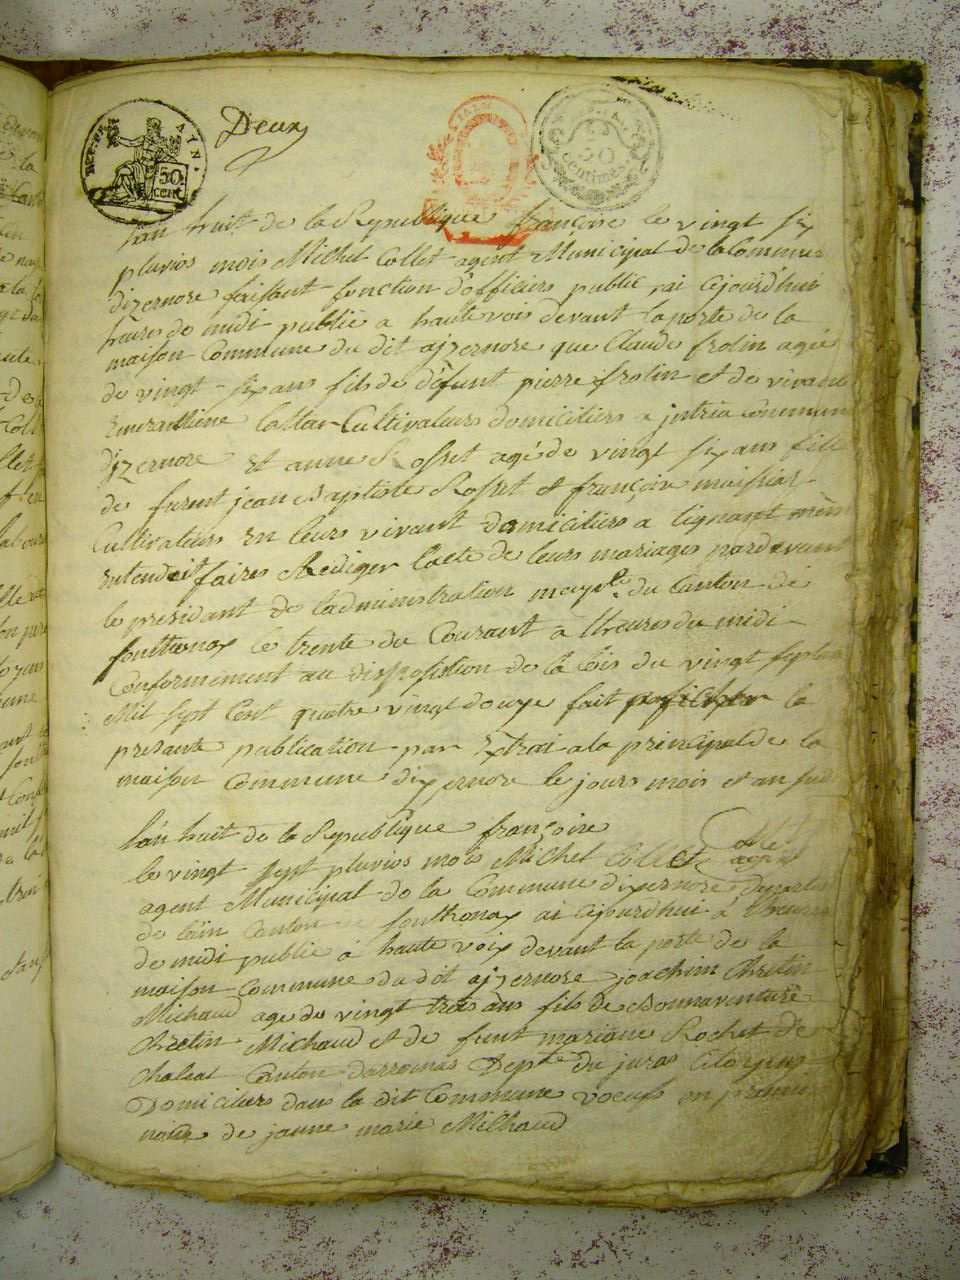 REP. FRA. AYN.
50 cent.
Deux
50
centimes
lan huit de la Republique françoise le vingt six
pluvios mois Michel Collet agent Municipal de la Commune
dizernore faissant fonction d'officiers public, jai cejourdhui
heures de midi publié a haute vois devant la porte de la
maison Commune du dit ayzernore que Claude frolin agée
de vingt six ans fils de défunt pierre frolin et de vivante
Cultivateurs domiciliers a Commune
dizernore et anne Rosset agé de vingt six ans fille
de furent jean Baptiste Rosset et françoise maissiaz
Cultivateurs en leurs vivant domiciliers a tignant
entendoit faires Rediger lacte de leurs mariages pardevant
le president de l'administration du Canton de
fonthenax le trente du Courant a heures du midi
Conformement au dispossition de la lois du vingt septembre
Mil sept Cent quatre vingt douze fait la
presante publication par Extrai a la principal de la
maison Commune dizernore le jours mois et an sus
lan huit de la Republique françoise
le vingt sept pluvios mois Michel Collet
agent Municipal de la Commune dizernore departe
de lain Canton fonthenax ai cejourdhui à heures
de midi publié à haute voix devant la porte de la
maison Commune du dit ayzernore joachim Chretin
Michaud age de vingt trois ans fils de Bonnaventure
Chretin Michaud et de funt mariane Rochet de
Canton darromas Depte du juras Citoyens
Domiciliers dans la dit Commune voeufs en premier
nosse de jeanne marie Milhaud